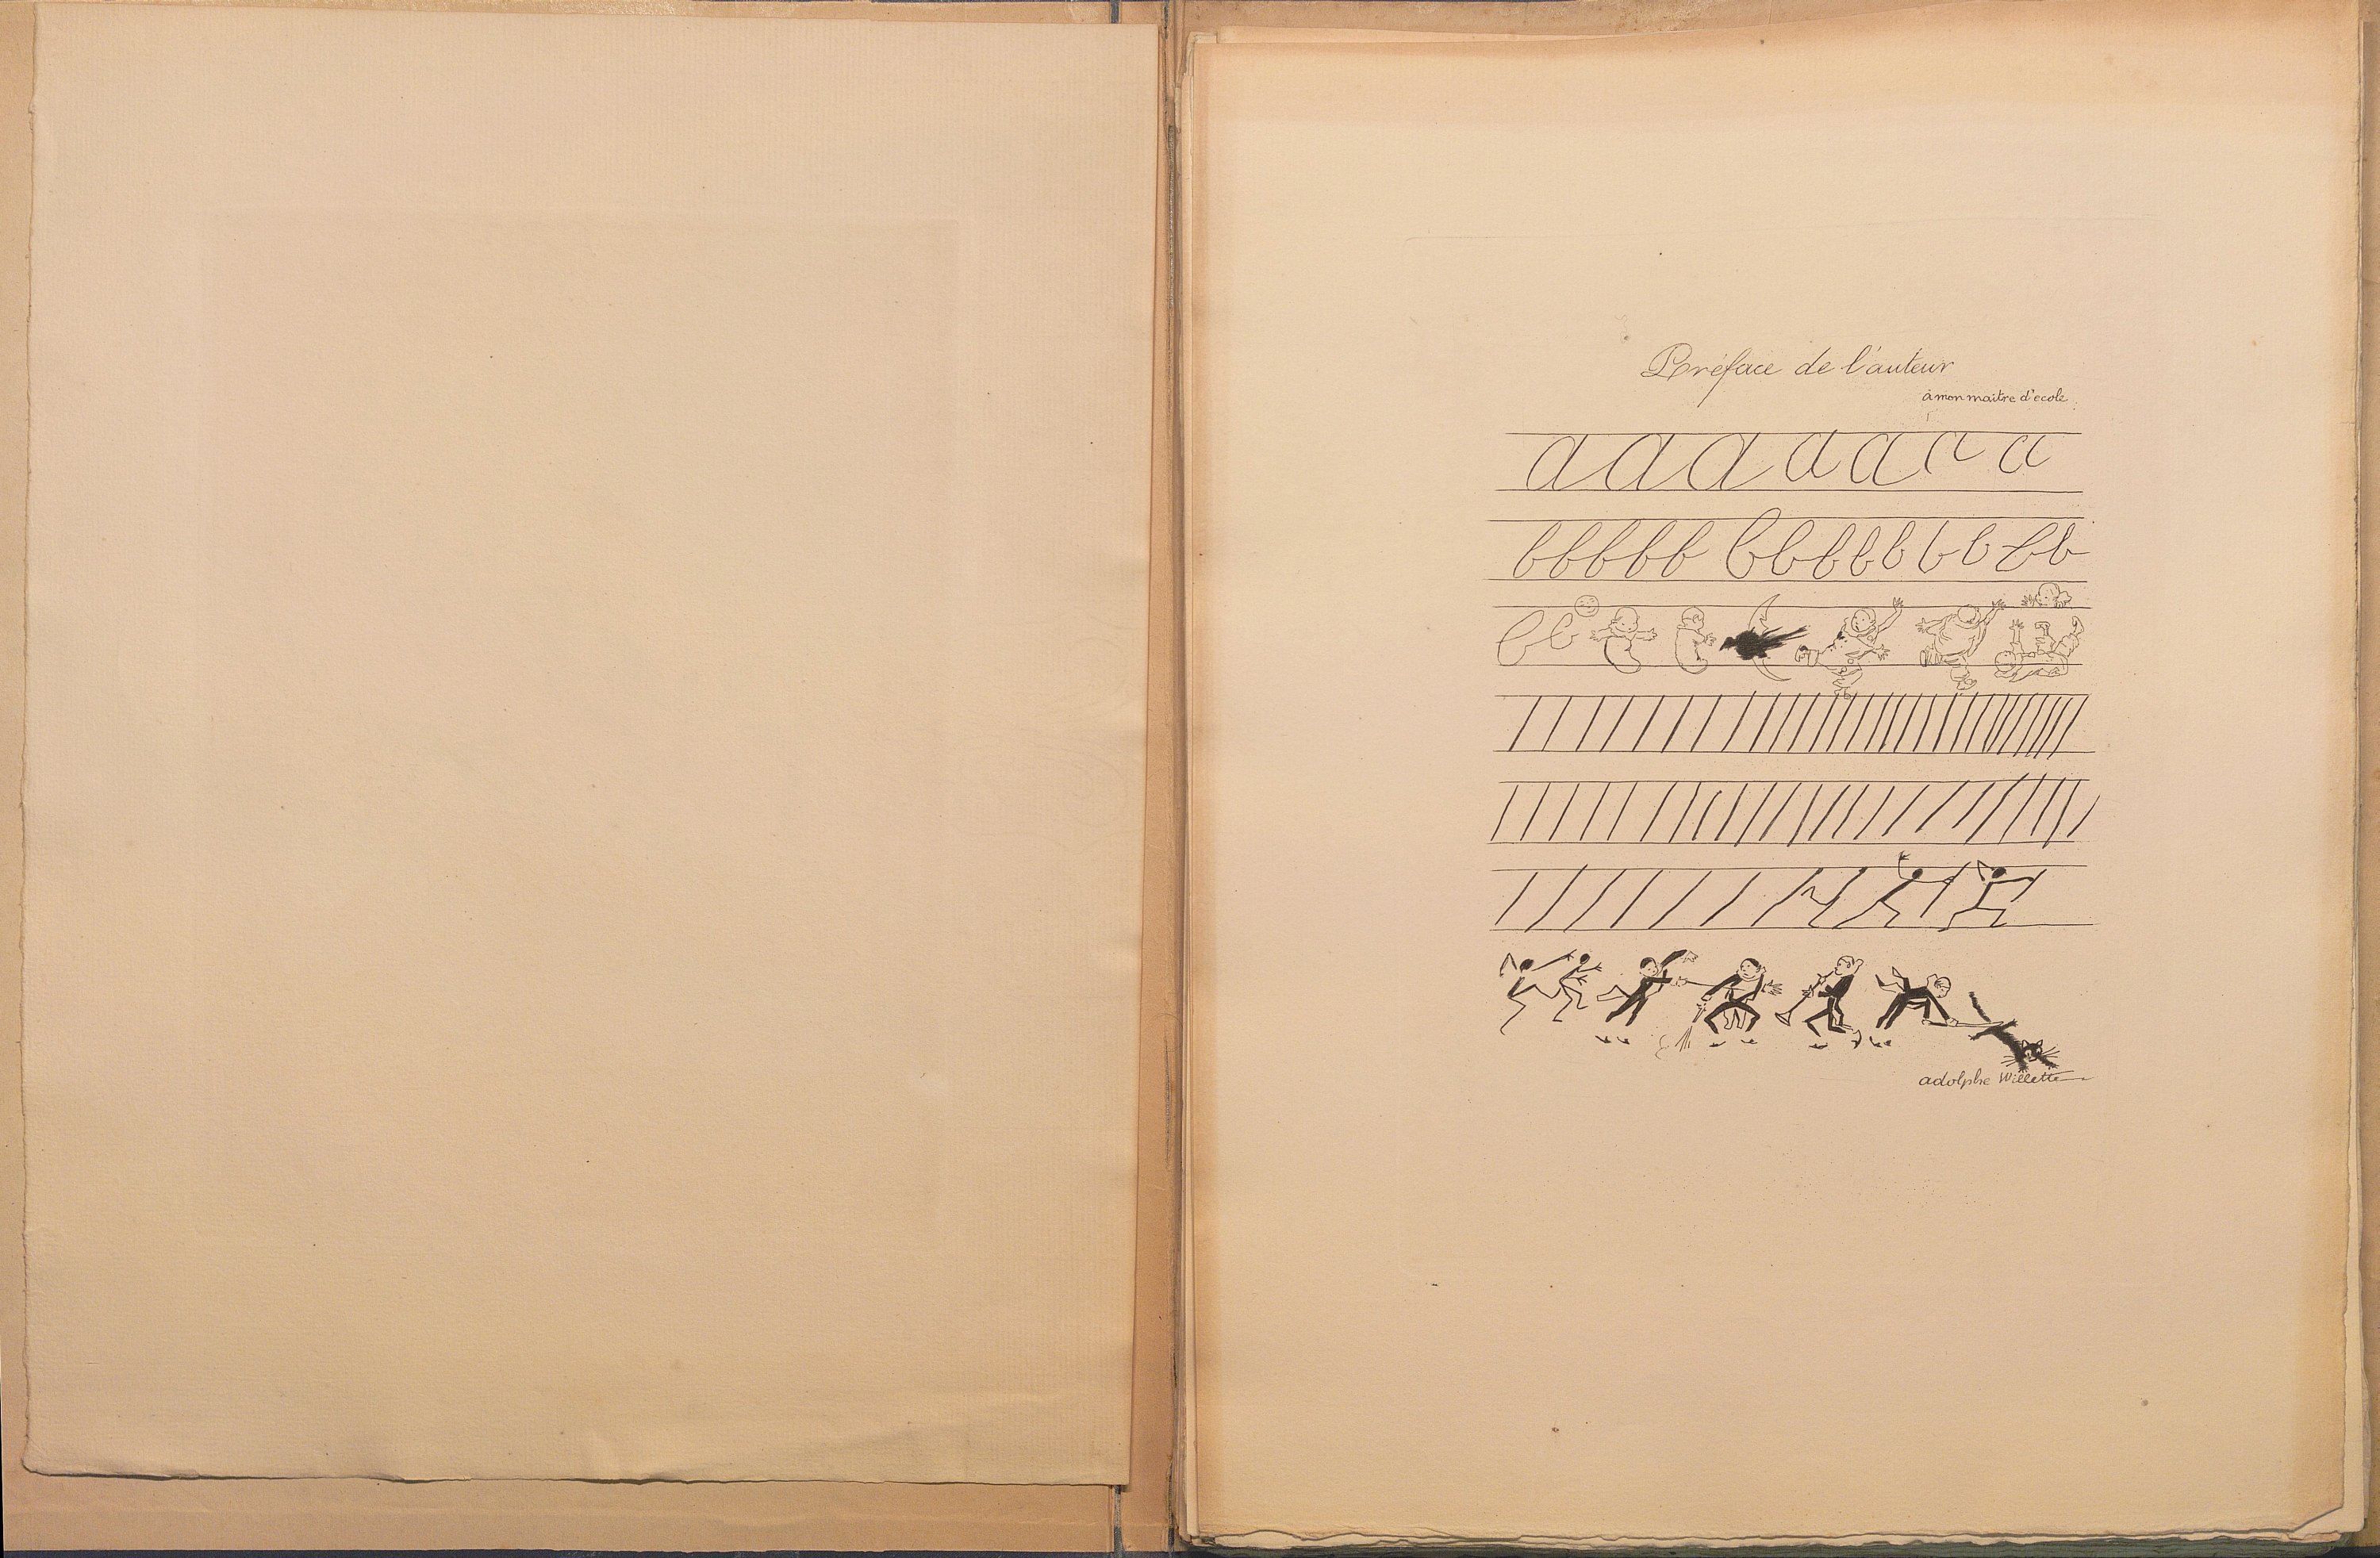 Préface de l'auteur
à mon maitre d'ecole
a a a a a a a
b b b b b b b b b b b b b b
b b
adolphe Willette